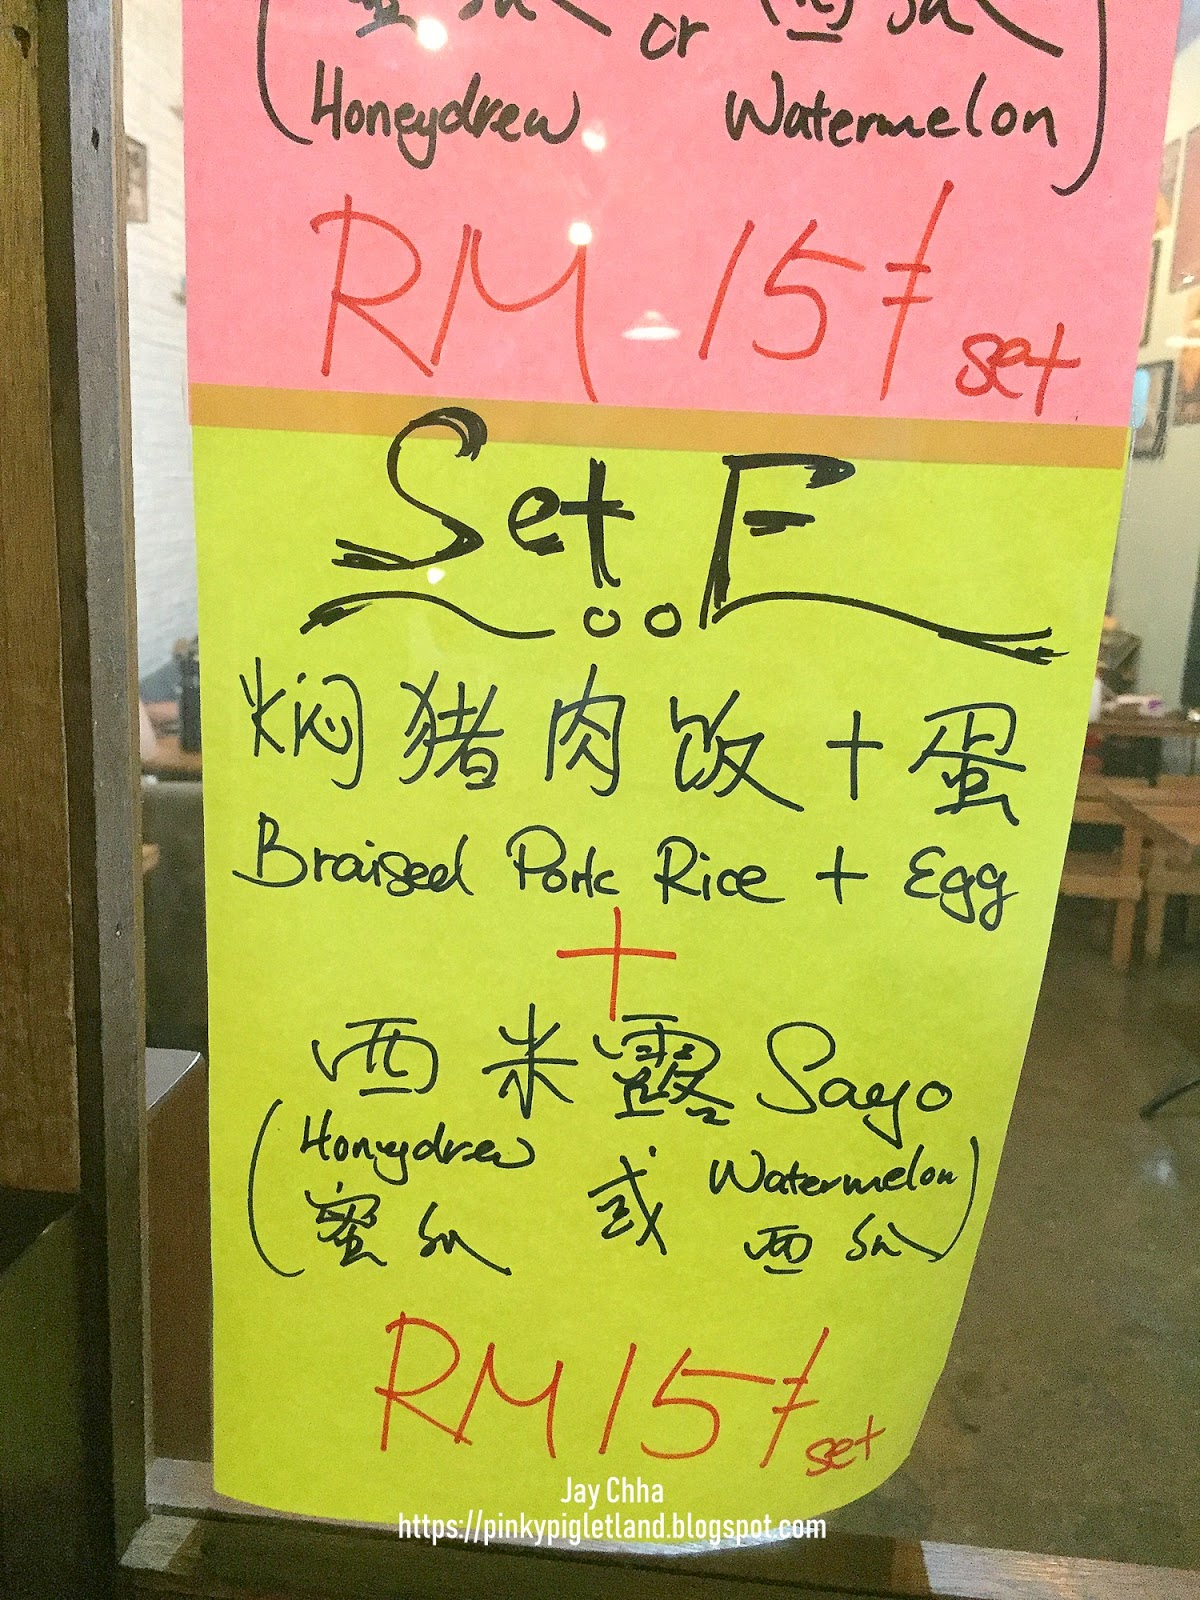 or
(Honeydrew Watermelon)
RM 15/= set
Set E
焖猪肉饭+蛋
Braised Pork Rice + Egg
+
西米露 Sago
(Honeydrew 或 Watermelon)
蜜瓜 西瓜
RM 15/= set
Jay Chha
https://pinkypigletland.blogspot.com